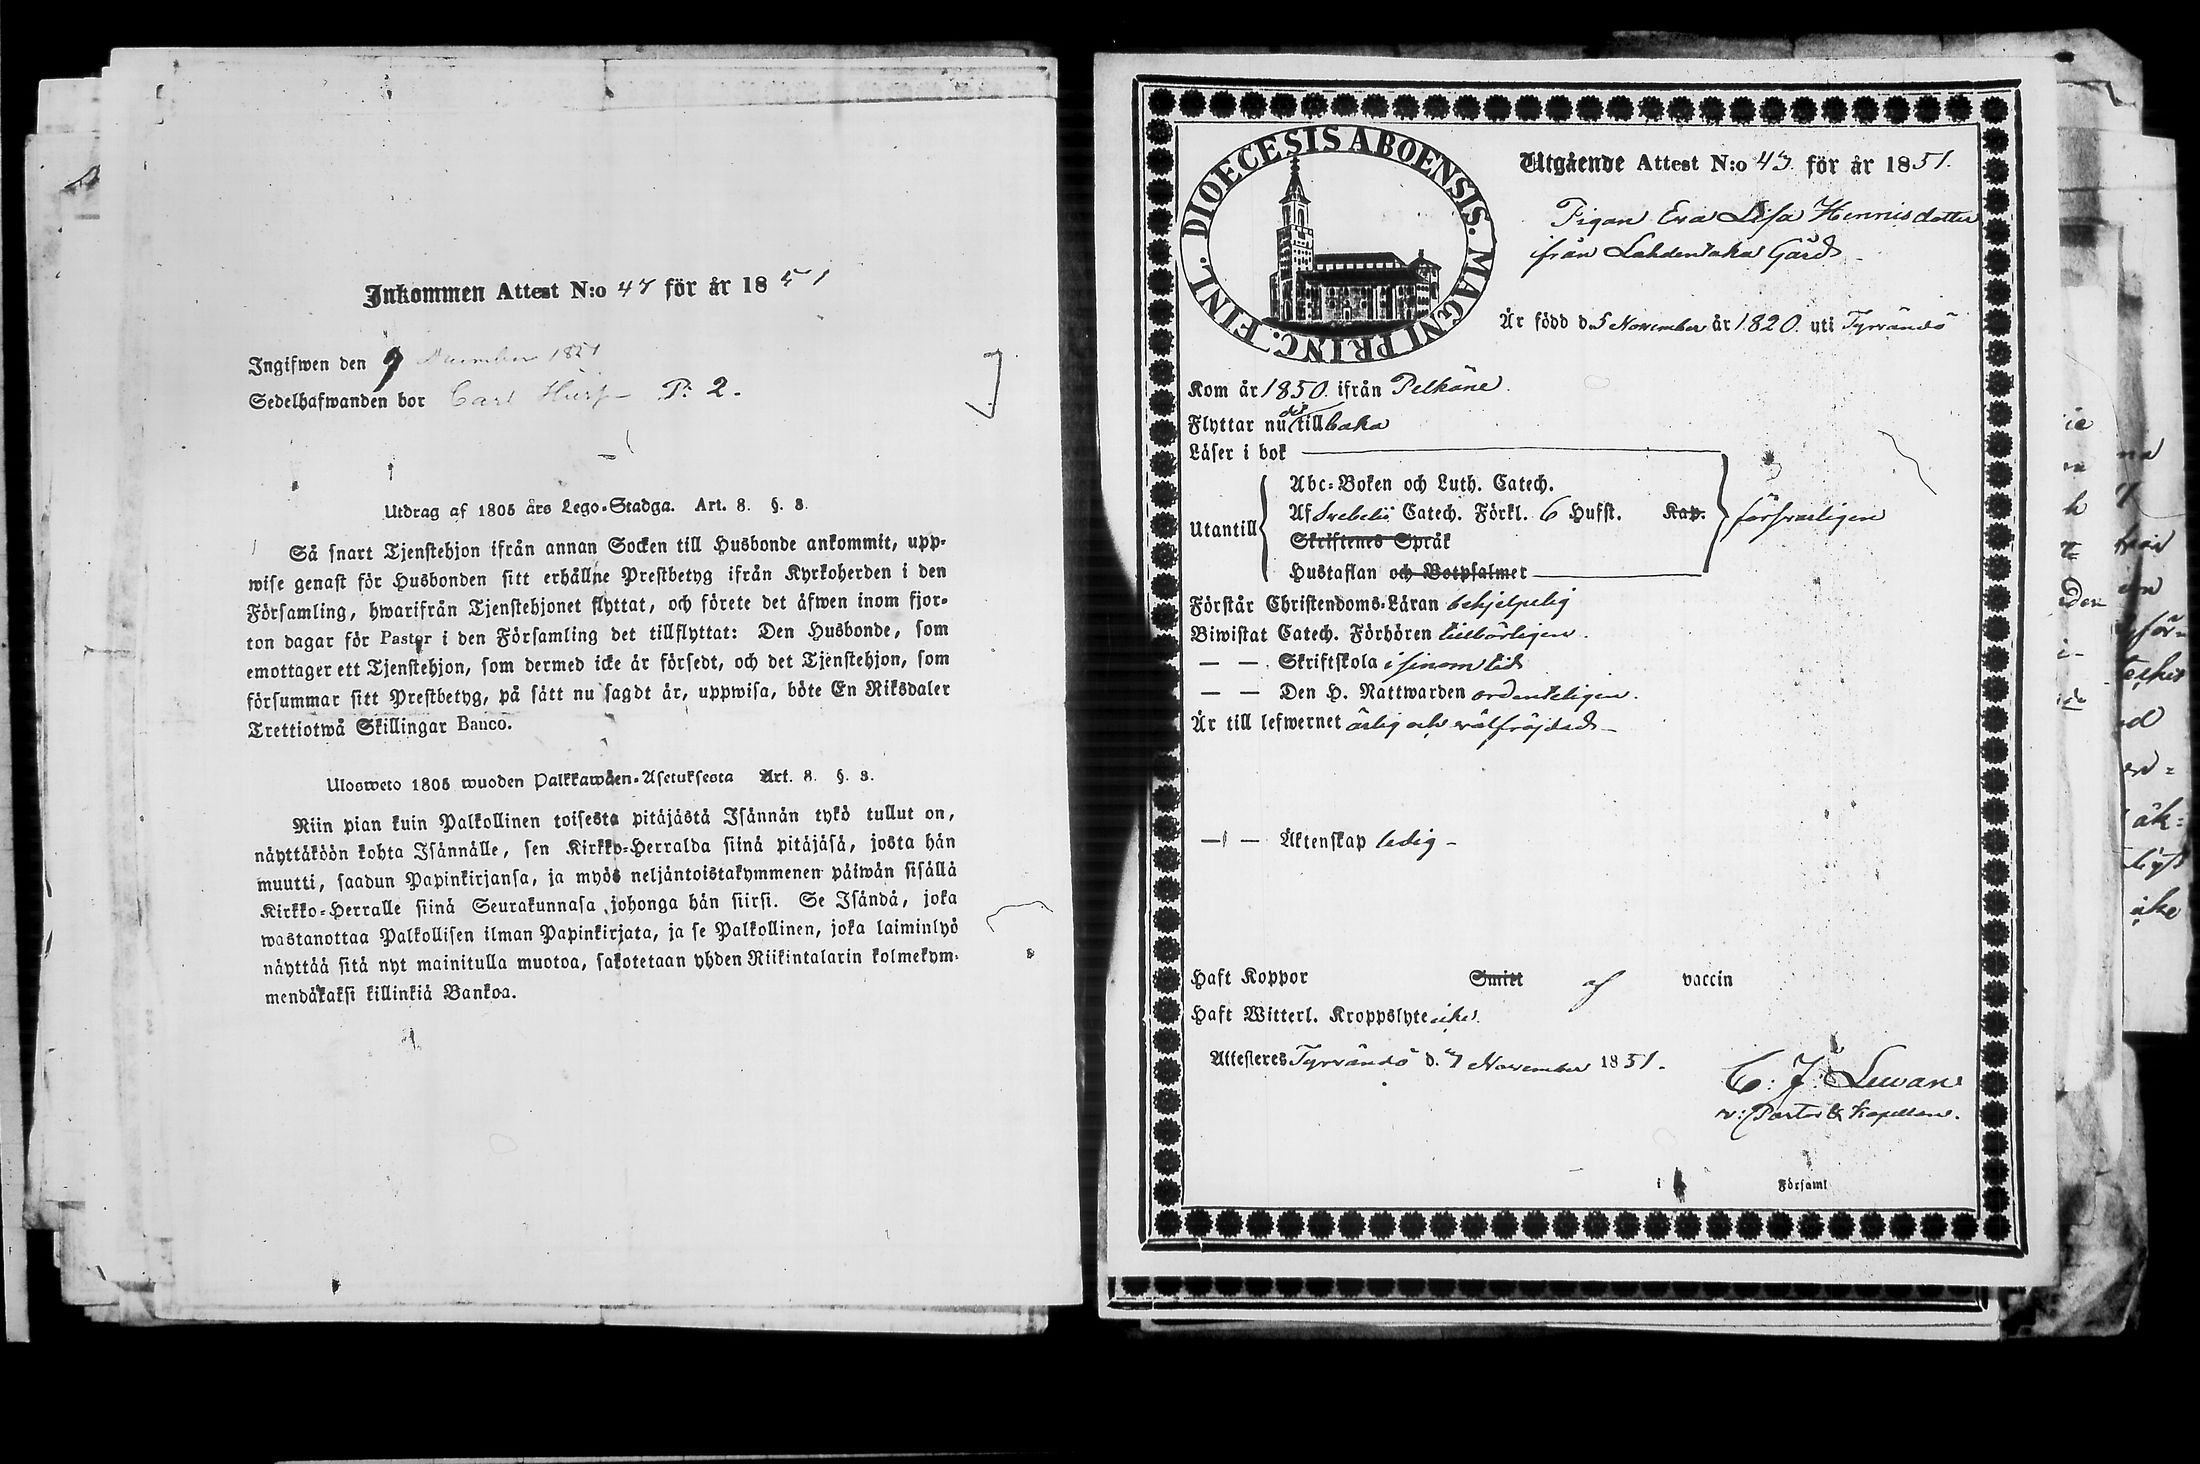 Inkommen Attest N:o 47 för år 1851
Ingifwen den 9 December 1851
Sedelhafwanden bor Carl P: 2.
Utdrag af 1805 års Lego-Stadga. Art. 8. §. 3.
Så snart Tjenstehjon ifrån annan Socken till Husbonde ankommit, upp-
wise genast för Husbonden sitt erhållne Prestbetyg ifrån Kyrkoherden i den
Församling, hwarifrån Tjenstehjonet flyttat, och förete det äfwen inom fjor-
ton dagar för Pastor i den Församling det tillflyttat: Den Husbonde, som
emottager ett Tjenstehjon, som dermed icke är försedt, och det Tjenstehjon, som
försummar sitt Prestbetyg, på sätt nu sagdt är, uppwisa, böte En Riksdaler
Trettiotwå Skillingar Banco.
Ulosweto 1805 wuoden Palkkawäen-Asetuksesta Art. 8. §. 3.
Niin pian kuin Palkollinen toisesta pitäjästä Isännän tykö tullut on,
näyttäköön kohta Isännälle, sen Kirkko-Herralda siinä pitäjäsä, josta hän
muutti, saadun Papinkirjansa, ja myös neljäntoistakymmenen päiwän sisällä
Kirkko-Herralle siinä Seurakunnasa johonga hän siirsi. Se Isändä, joka
wastanottaa Palkollisen ilman Papinkirjata, ja se Palkollinen, joka laiminlyö
näyttää sitä nyt mainitulla muotoa, sakotetaan yhden Riikintalarin kolmekym-
mendäkaksi killinkiä Bankoa.
DIOECESIS ABOENSIS. MAGNI PRINC. FINL.
Utgående Attest N:o 43. för år 1851.
Pigan Eva Lisa Henriksdotter
från Lahdentaka Gård
Är född d. 5 November år 1820. uti Tyrvändö
Kom år 1850. ifrån Pelkäne.
Flyttar nu dit tillbaka
Läser i bok
Utantill
Abc-Boken och Luth. Catech.
Af Svebelii Catech. Förkl. 6 Hufst. Kap.
försvarligen
Skriftenes Språk
Hustaflan och Botpsalmer
Förstår Christendoms-Läran behjelpelig
Biwistat Catech. Förhören tillbörligen.
— — Skriftskola i sinom tid
— — Den H. Nattwarden ordenteligen.
Är till lefwernet ärlig och välfräjdad
— — Äktenskap ledig
Haft Koppor Smitt af vaccin
Haft Witterl. Kroppslyte icke.
Attesteres Tyrvändö d. 7 November 1851.
C: J: Lewan
v: Pastor & Kapellan.
i Församl